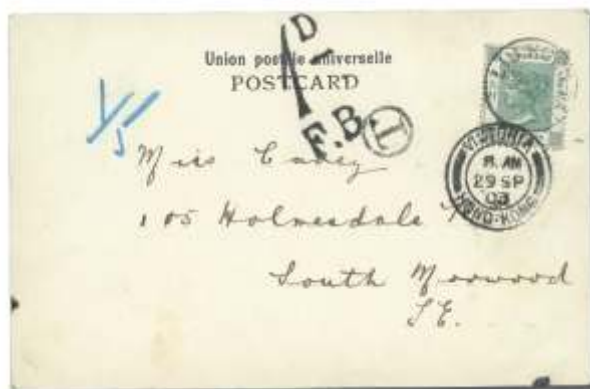 Union postale universelle
POSTCARD
1 D
F.B.
T
1/5
VICTORIA
AM
29 SP
03
HONG-KONG
Miss
105 Holmesdale
South Norwood
S.E.